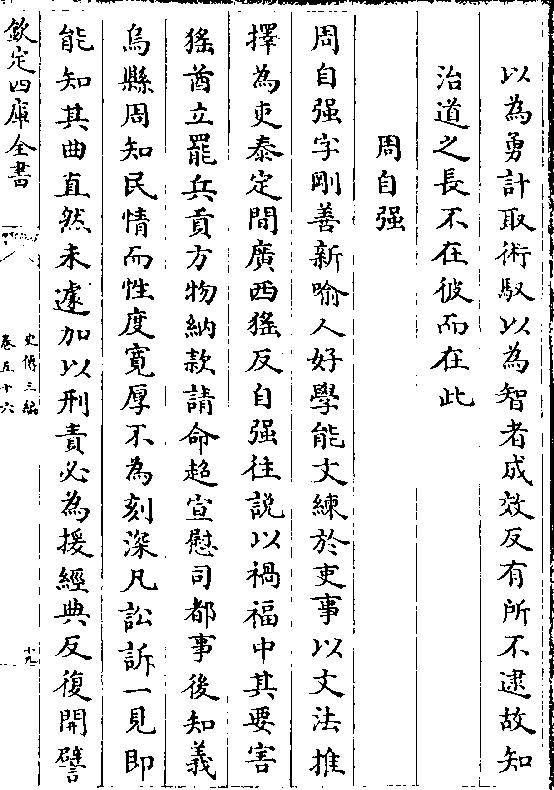 以為勇計取術馭以為智者成效反有所不逮故知
治道之長不在彼而在此
周自强
周自强字剛善新喻人好學能文練於吏事以文法推
擇為吏泰定間廣西猺反自强往説以禍福中其要害
猺酋立罷兵貢方物納款請命超宣慰司都事後知義
烏縣周知民情而性度寛厚不為刻深凡訟訴一見即
能知其曲直然未遽加以刑責必為援經典反復開譬
欽定四庫全書
史傳三編
卷五十六
十九